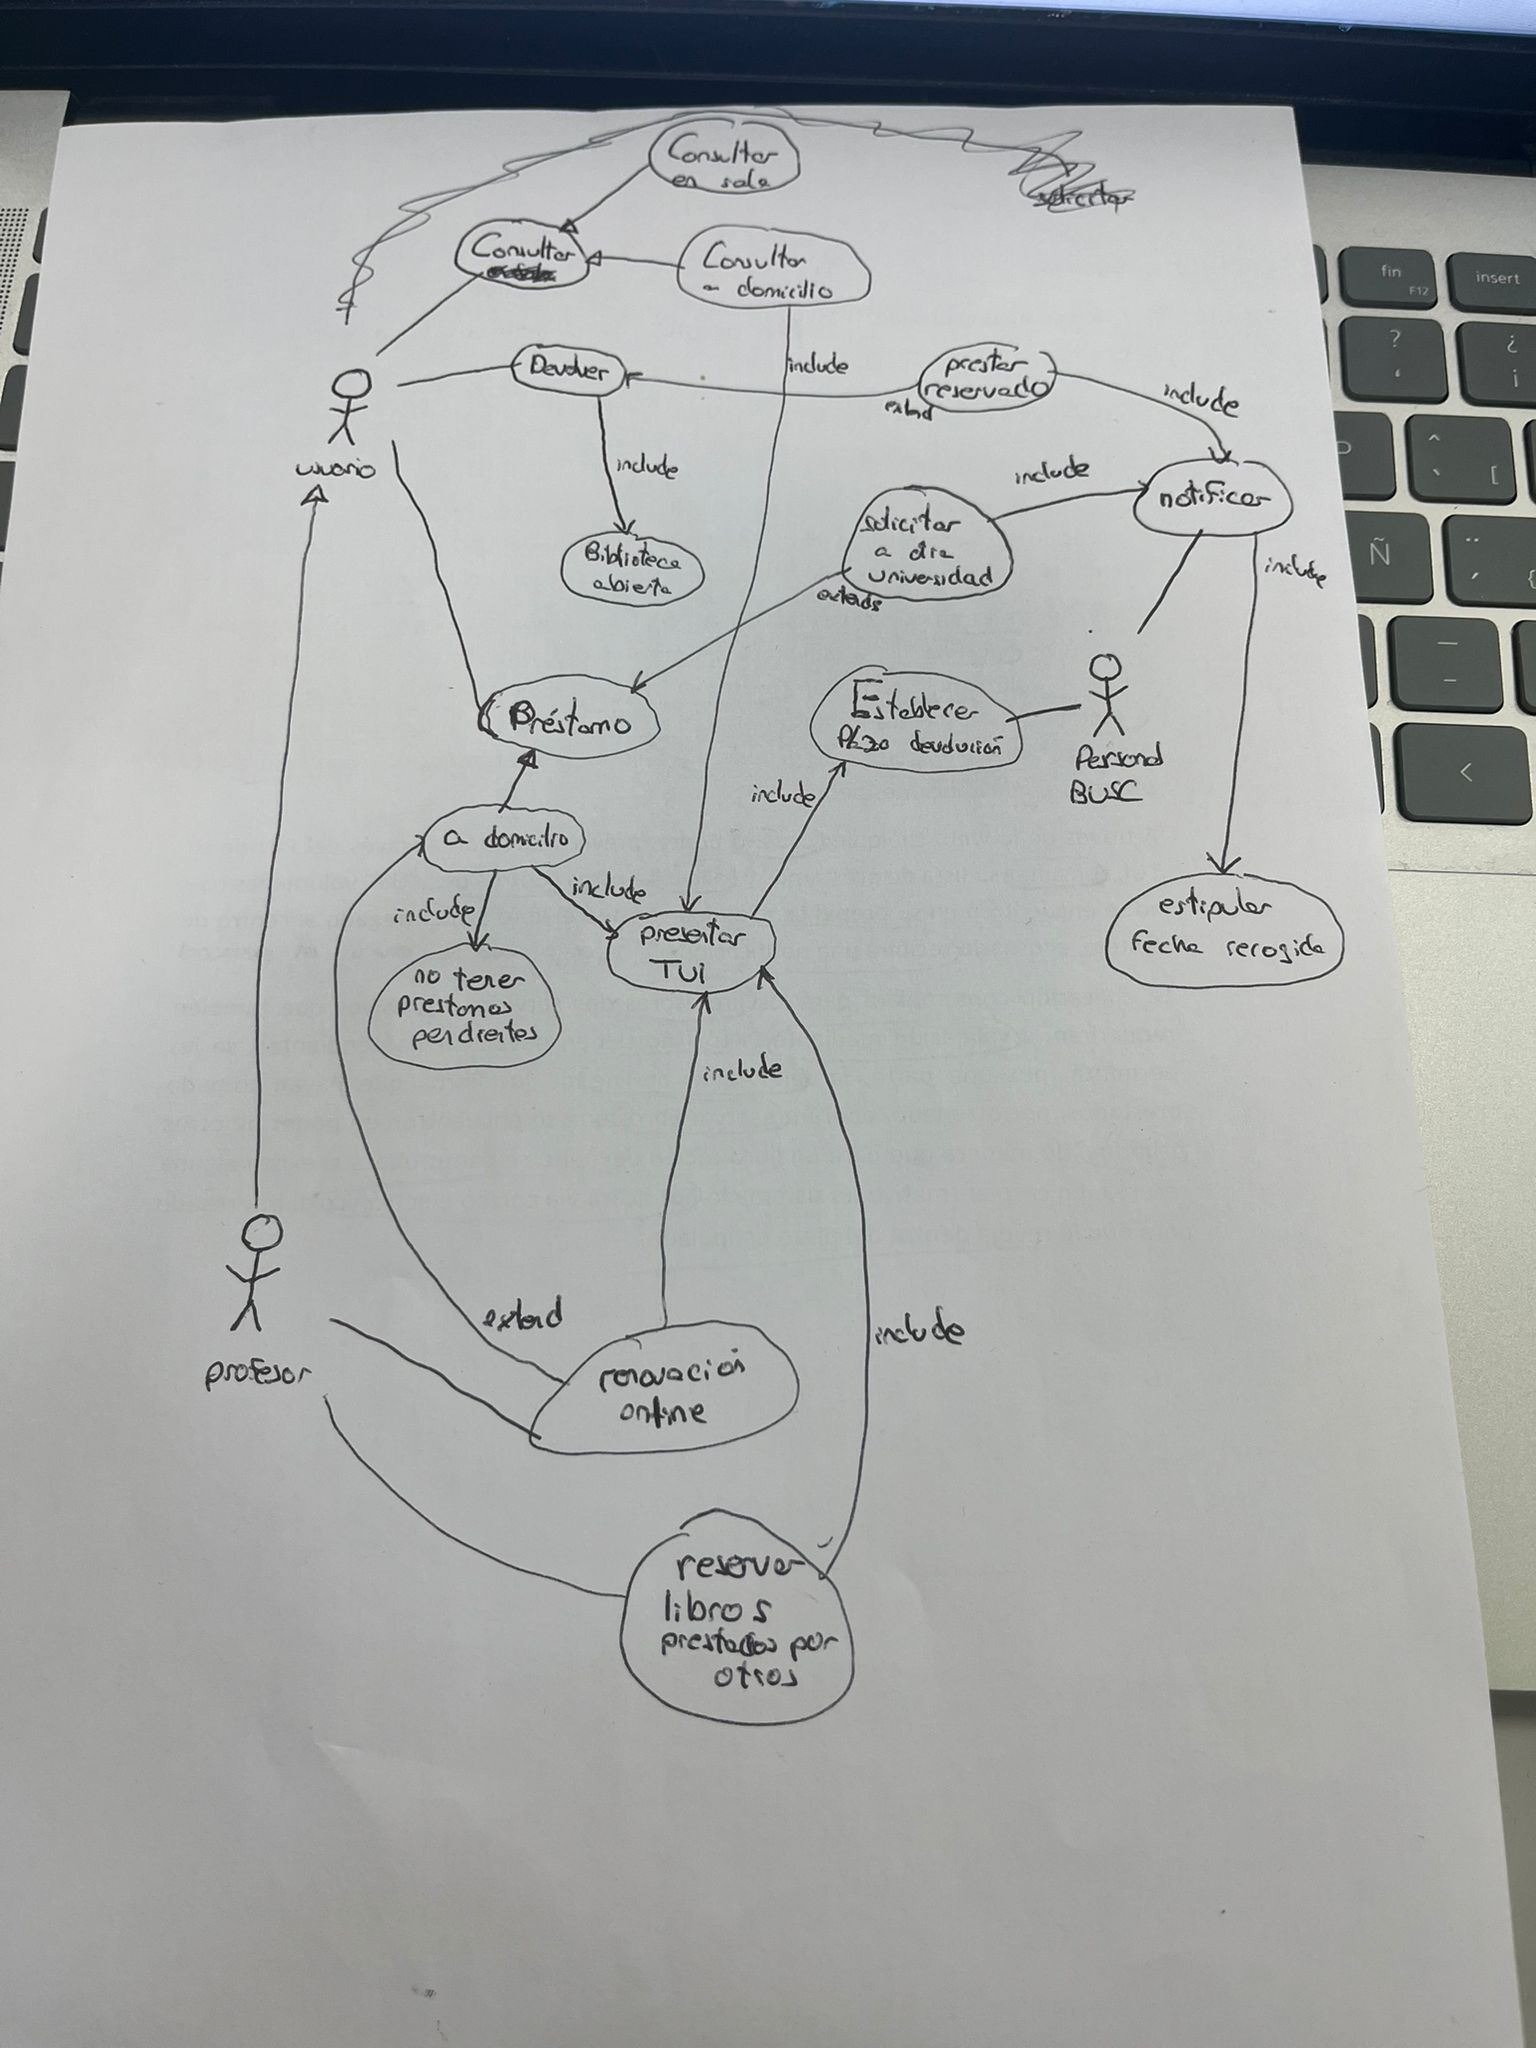 Consultar
en sala
solicitar
Consultar
Consultar
a domicilio
Devolver
include
prestar
reservado
extend
include
usuario
include
include
notificar
solicitar
a otra
universidad
extends
include
Biblioteca
abierta
Préstamo
Establecer
Plazo devolución
Personal
BUSC
include
a domicilio
include
include
presentar
TUI
estipular
Fecha recogida
no tener
prestamos
pendientes
include
extend
include
profesor
renovación
online
reservar
libros
prestados por
otros
fin
F12
insert
?
¿
¡
Ñ